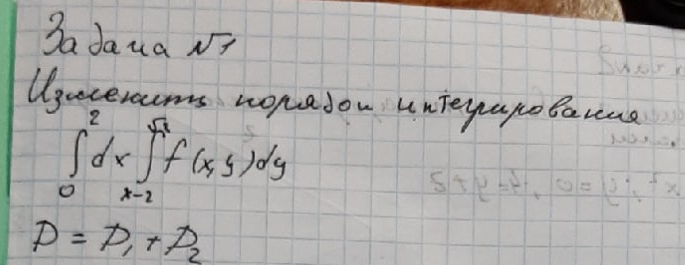 Задача №1
Изменить порядок интегрирования
2 √x
∫dx∫f(x,y)dy
0 x-2
D = D₁ + D₂